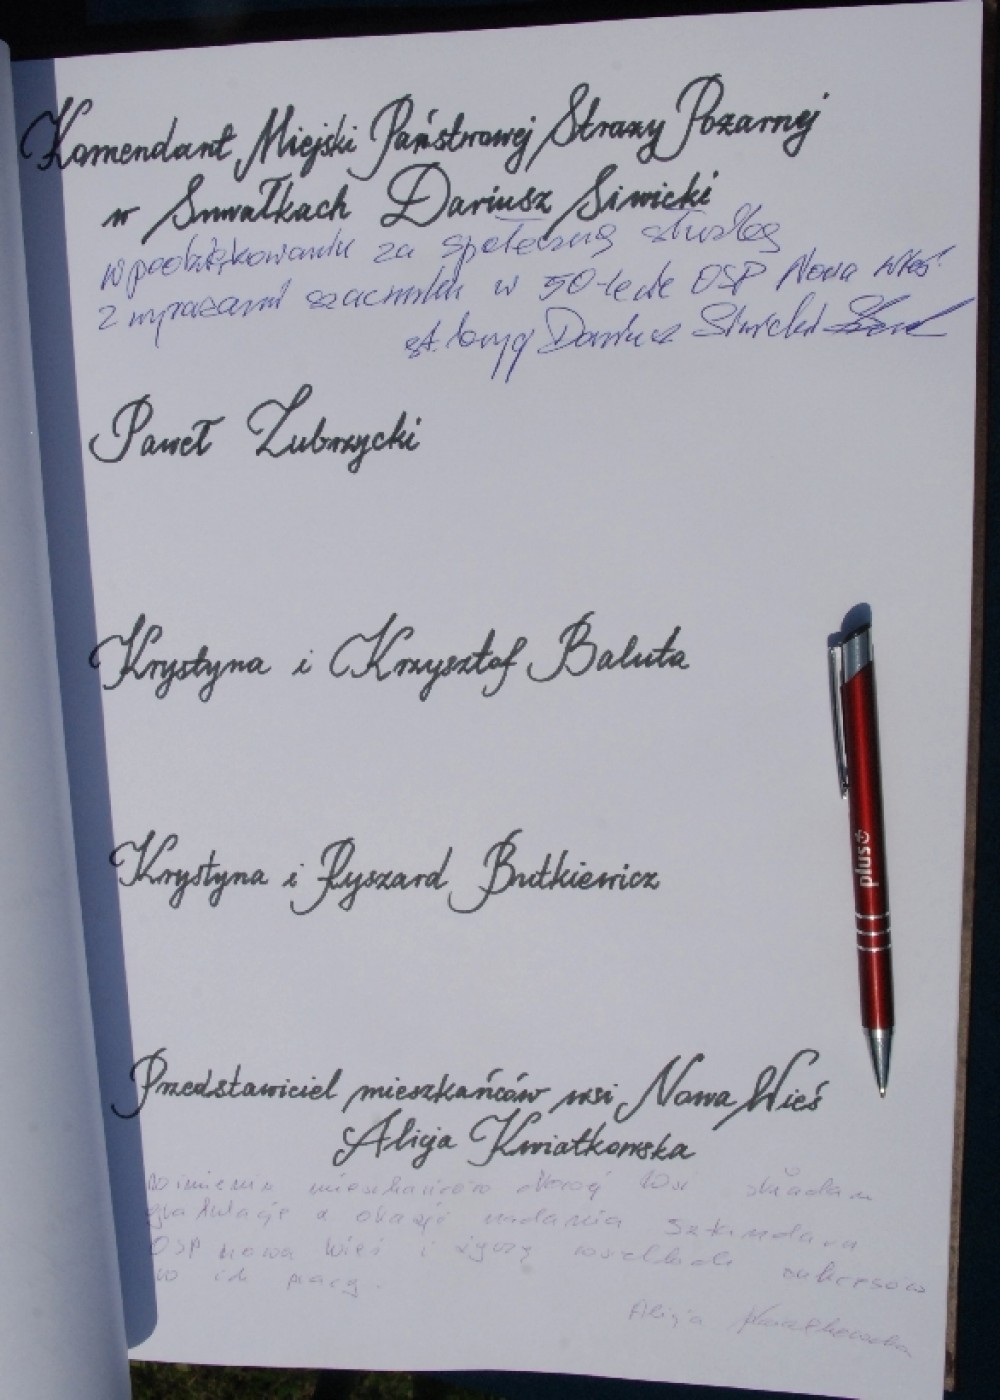 Komendant Miejski Państwowej Straży Pożarnej
w Suwałkach Dariusz Siwicki
w podziękowaniu za społeczną służbę
z wyrazami szacunku w 50-lecie OSP Nowa Wieś
st. bryg Dariusz Siwicki
Paweł Zubrzycki
Krystyna i Krzysztof Baluta
Krystyna i Ryszard Butkiewicz
plus
Przedstawiciel mieszkańców wsi Nowa Wieś
Alicja Kwiatkowska
W imieniu mieszkańców Nowej Wsi składam
gratulacje z okazji nadania sztandaru
OSP Nowa Wieś i życzę wszelkich sukcesów
w ich pracy.
Alicja Kwiatkowska